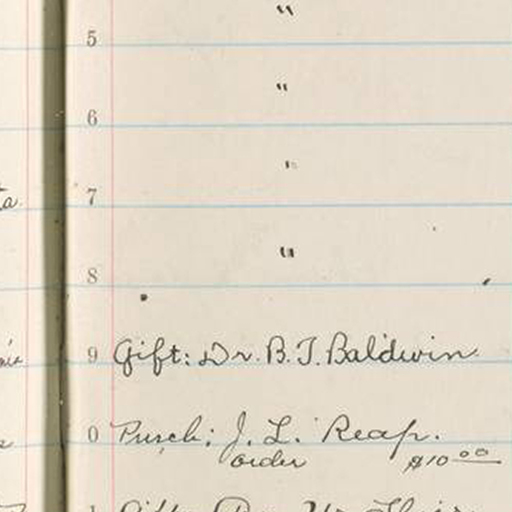 5 "
6 "
a
7 "
8 "
9 Gift: Dr. B. T. Baldwin.
0 Purch: J. L. Reap.
order $10.00